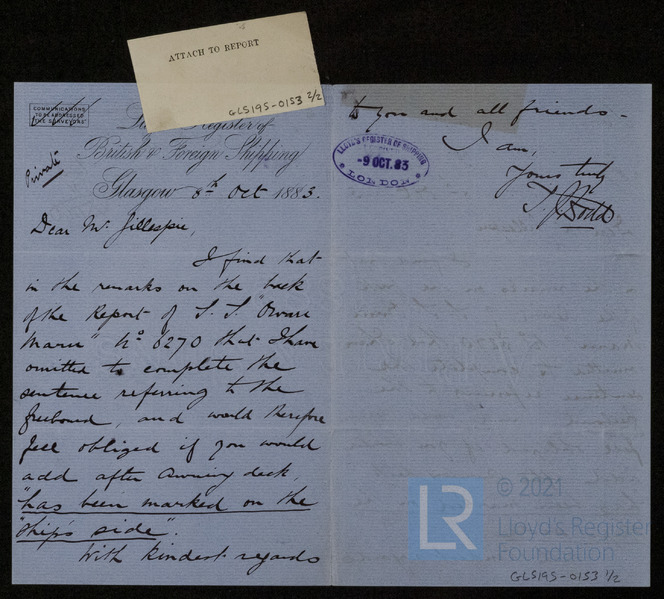 ATTACH TO REPORT
GLS195-0153 2/2
COMMUNICATIONS
TO BE ADDRESSED
"THE SURVEYORS"
Register of
British & Foreign Shipping
Private
Glasgow 8th Oct 1883.
Dear Mr Gillespie,
I find that
in the remarks on the back
of the Report of S.S. "Owari
Maru" No 6270 that I have
omitted to complete the
sentence referring to the
freeboard, and would therefore
feel obliged if you would
add after awning deck,
"has been marked on the
"ship's side".
With kindest regards
to you and all friends -
I am,
Yours truly
T. J. Dodd
LLOYD'S REGISTER OF SHIPPING
-9 OCT. 83
LONDON
LR
© 2021
Lloyd's Register
Foundation
GLS195-0153 1/2